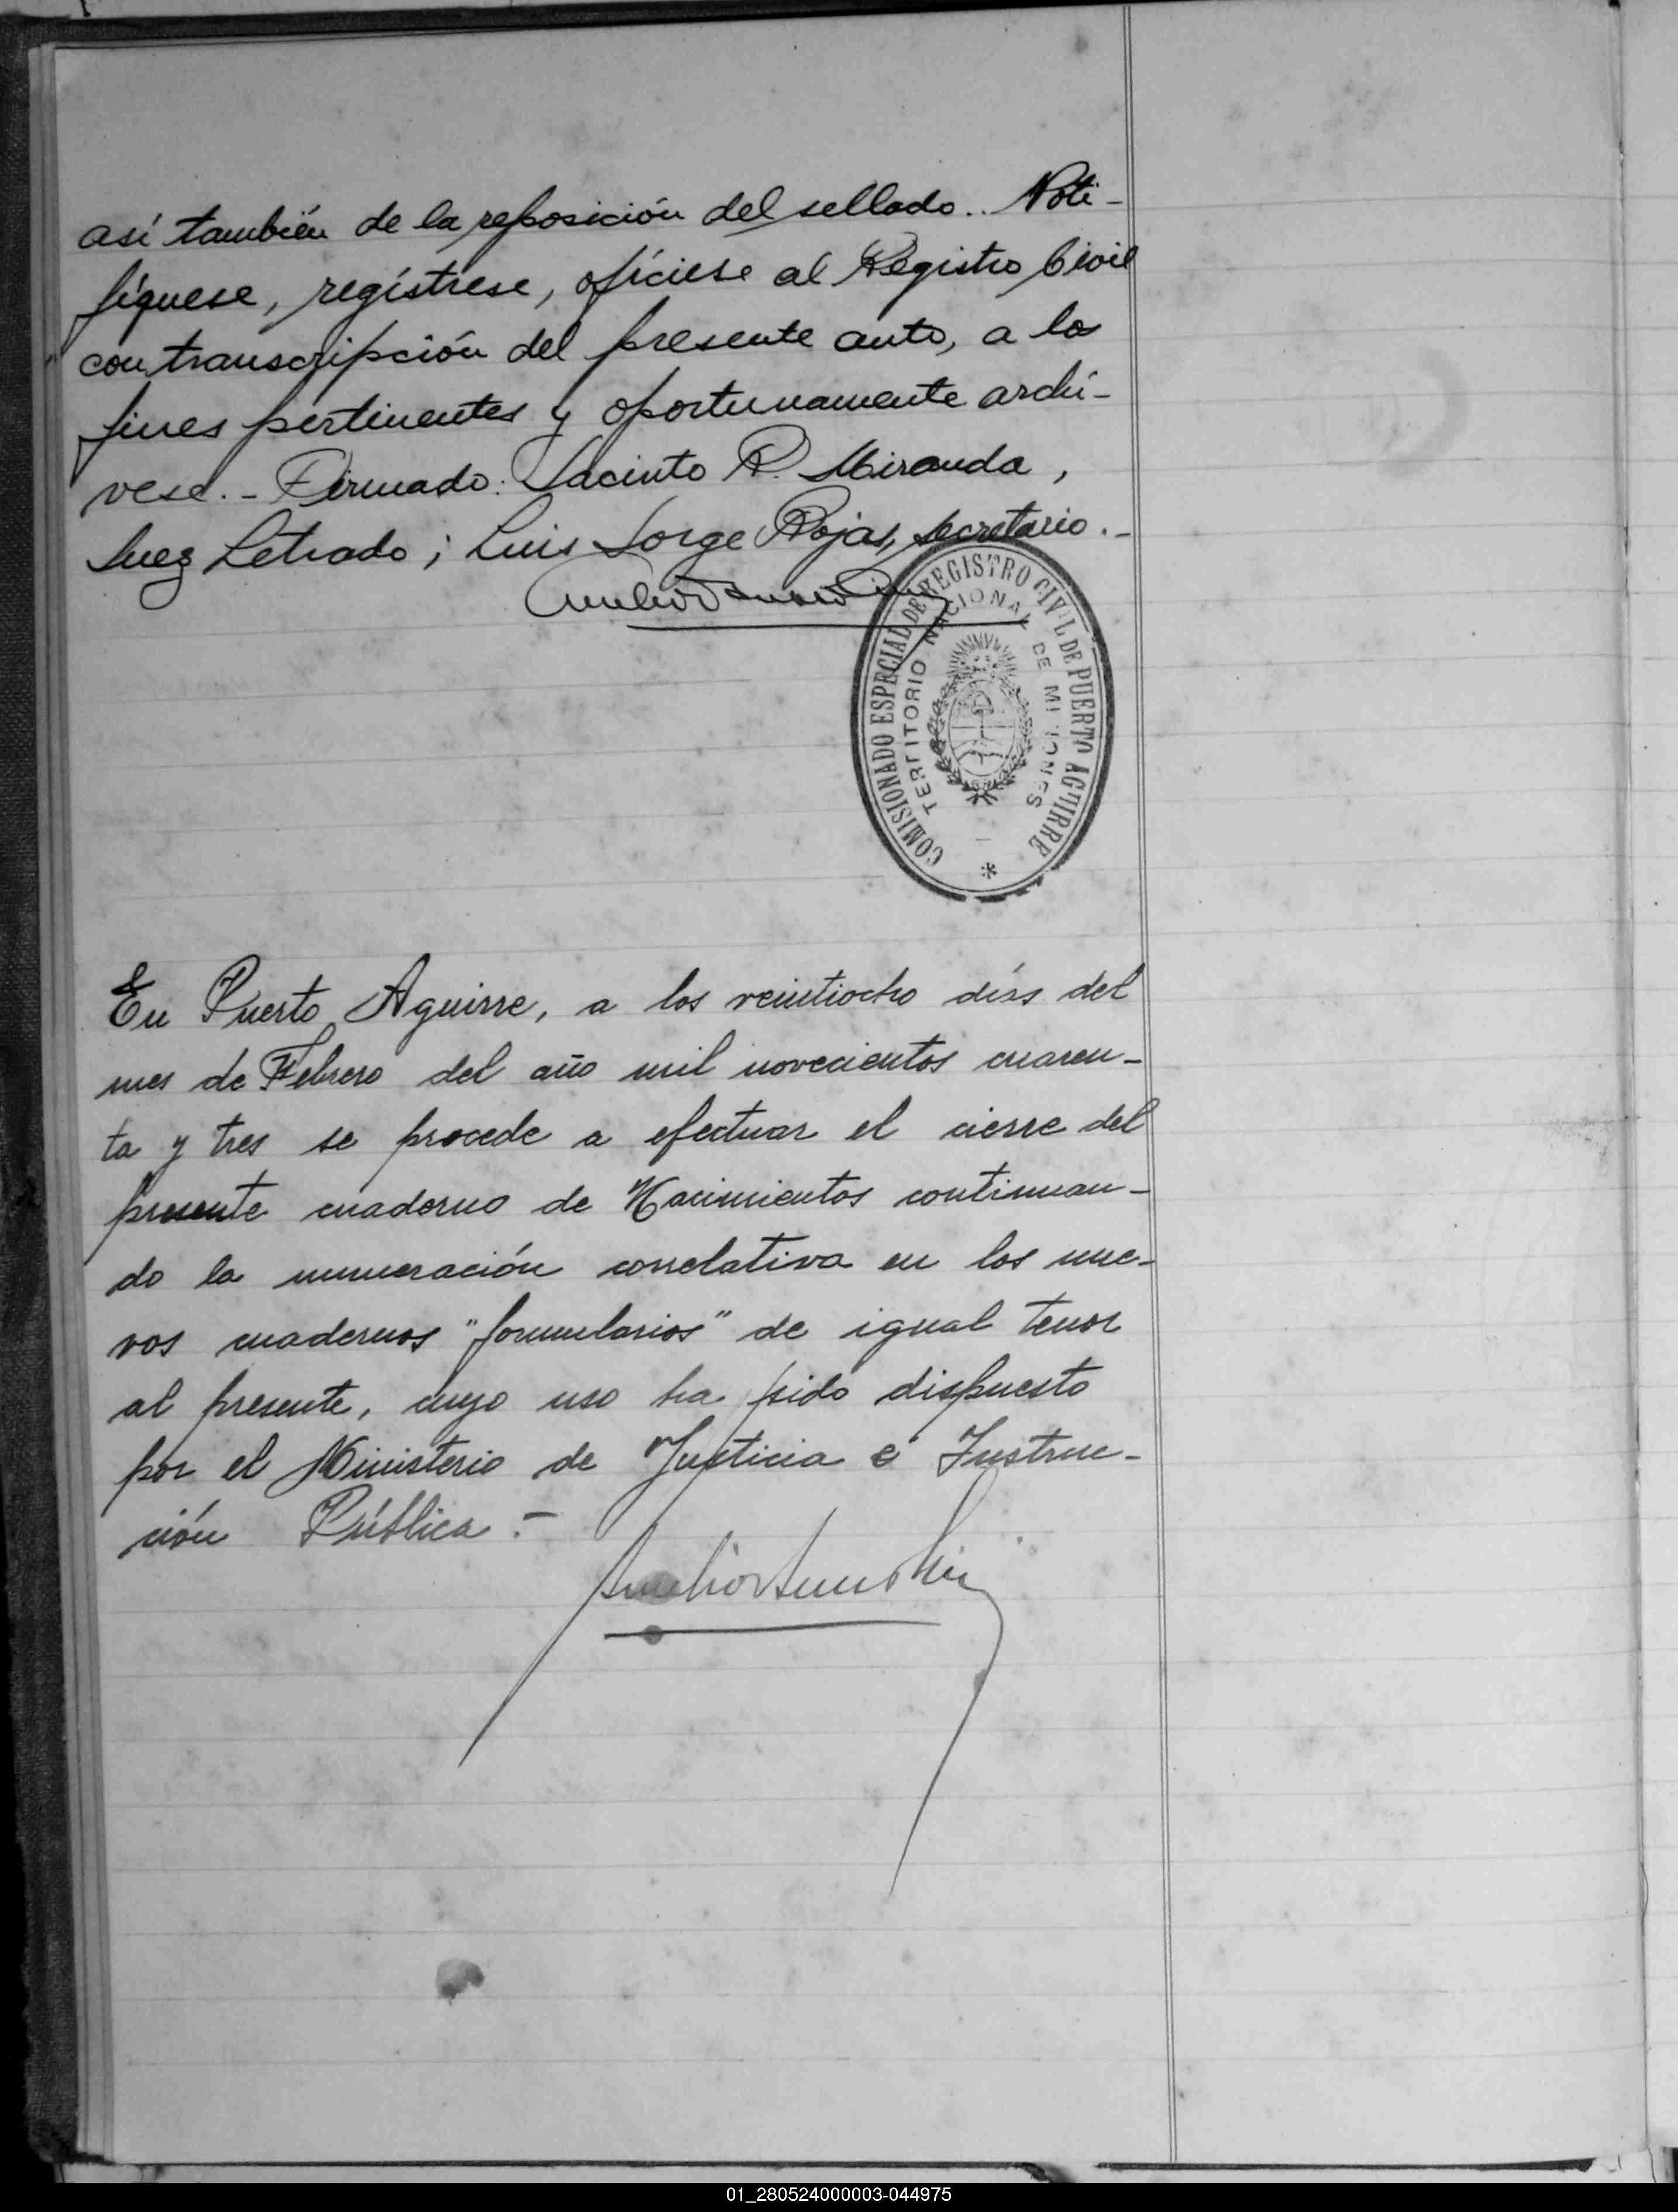 así también de la reposición del sellado.. Noti-
fíquese, regístrese, ofíciese al Registro Civil
con transcripción del presente auto, a los
fines pertinentes y oportunamente archí-
vese.- Firmado: Jacinto R. Miranda,
Juez Letrado; Luis Jorge Rojas, secretario.-
COMISIONADO ESPECIAL DE REGISTRO CIVIL DE PUERTO AGUIRRE
TERRITORIO NACIONAL DE MISIONES
En Puerto Aguirre, a los veintiocho días del
mes de Febrero del año mil novecientos cuaren-
ta y tres se procede a efectuar el cierre del
presente cuaderno de Nacimientos continuan-
do la numeración correlativa en los nue-
vos cuadernos "formularios" de igual tenor
al presente, cuyo uso ha sido dispuesto
por el Ministerio de Justicia é Instruc-
ción Pública.-
01_280524000003-044975